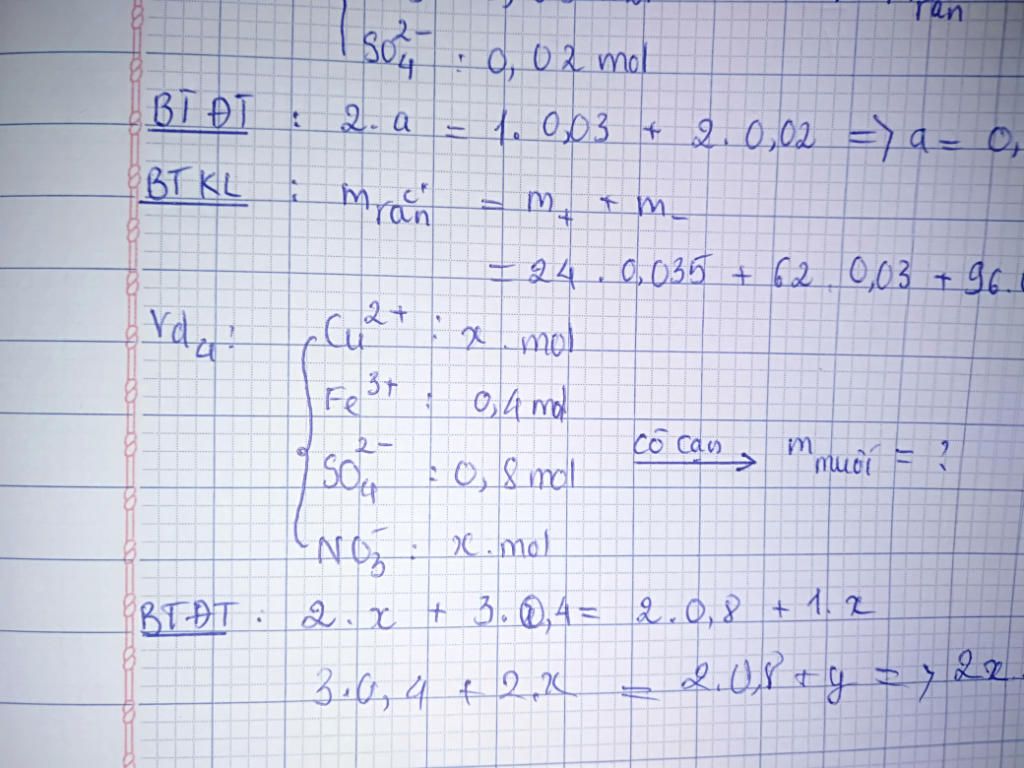 rắn
SO₄²⁻ : 0,02 mol
BTĐT : 2.a = 1.0,03 + 2.0,02 => a = 0,
BTKL : m rắn = m₊ + m₋
= 24.0,035 + 62.0,03 + 96.
Vd₄: Cu²⁺ : x.mol
Fe³⁺ : 0,4 mol
cô cạn → m muối = ?
SO₄²⁻ : 0,8 mol
NO₃⁻ : x.mol
BTĐT : 2.x + 3.0,4 = 2.0,8 + 1.x
3.0,4 + 2.x = 2.0,8 + y => 2x